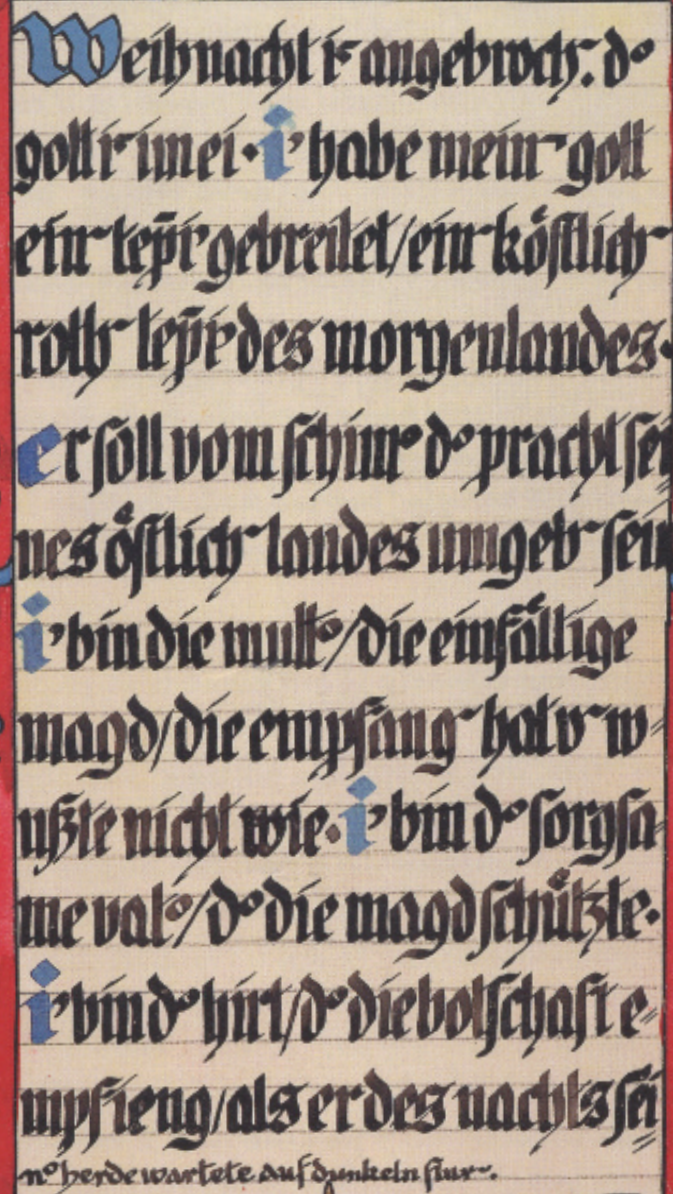 Weihnacht iſ angebroch. d°
gott iſ im ei. i' habe mein gott
ein tep̄i gebreitet/ein köſtlich
roth tep̄i des morgenlandes.
er ſoll vom ſchim° d° pracht ſei
nes öſtlich landes umgeb ſein
i' bin die mutt°/die einfältige
magd/die empfang hat v w
ußte nicht wie. i' bin d° ſorgſa
me vat°/d° die magd ſchützte.
i' bin d° hirt/d° die botſchaft e
mpfieng/als er des nachts ſei
n° herde wartete auf dunkeln flur.